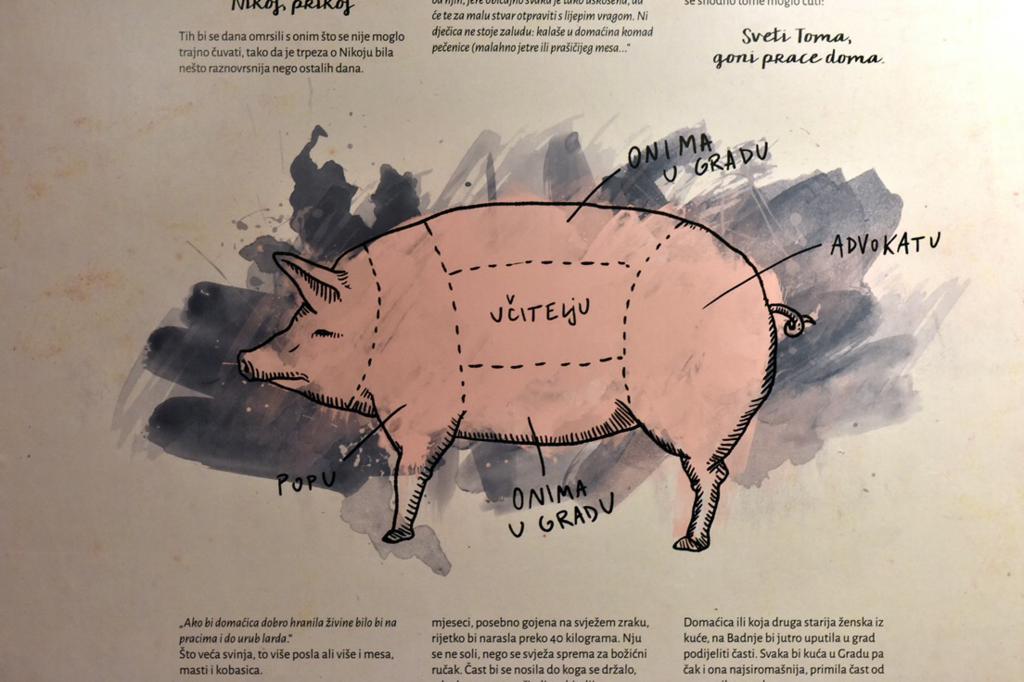 Nikoj, prikoj
Tih bi se dana omrsili s onim što se nije moglo
trajno čuvati, tako da je trpeza o Nikoju bila
nešto raznovrsnija nego ostalih dana.
će te za malu stvar otpraviti s lijepim vragom. Ni
dječica ne stoje zaludu: kalaše u domaćina komad
pečenice (malahno jetre ili prašičijeg mesa..."
Sveti Toma,
goni prace doma.
ONIMA
U GRADU
ADVOKATU
UČITELJU
POPU
ONIMA
U GRADU
„Ako bi domaćica dobro hranila živine bilo bi na
pracima i do urub larda."
Što veća svinja, to više posla ali više i mesa,
masti i kobasica.
mjeseci, posebno gojena na svježem zraku,
rijetko bi narasla preko 40 kilograma. Nju
se ne soli, nego se svježa sprema za božićni
ručak. Čast bi se nosila do koga se držalo,
Domaćica ili koja druga starija ženska iz
kuće, na Badnje bi jutro uputila u grad
podijeliti časti. Svaka bi kuća u Gradu pa
čak i ona najsiromašnija, primila čast od